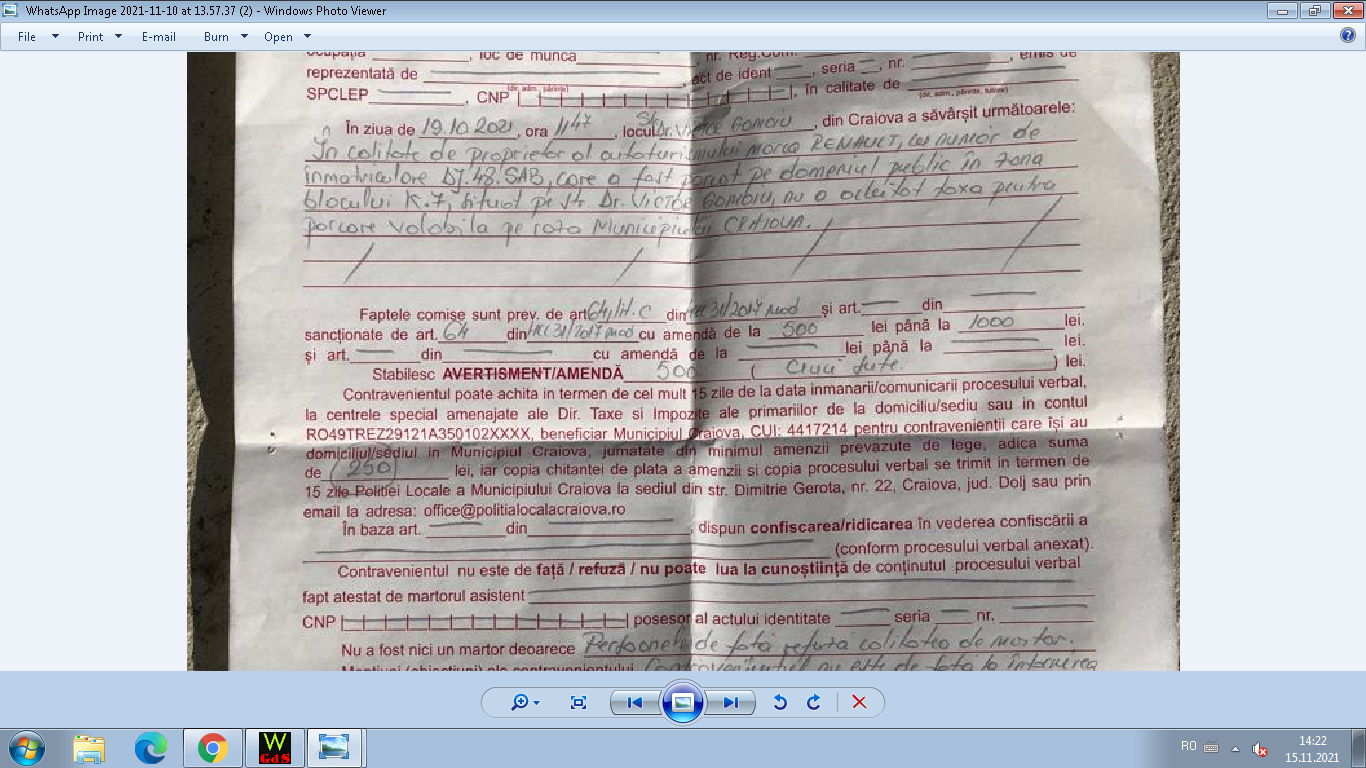 WhatsApp Image 2021-11-10 at 13.57.37 (2) - Windows Photo Viewer
File Print E-mail Burn Open
ocupația , loc de munca , nr. Reg.Com. , emis de
reprezentată de , act de ident , seria , nr.
SPCLEP , CNP (dir, adm., părinte) , în calitate de (dir, adm., părinte, tutore)
În ziua de 19.10.2021, ora 1147, locul Str Dr. VICTOR GOMOIU, din Craiova a săvârșit următoarele:
În calitate de proprietar al autoturismului marca RENAULT, cu număr de
înmatriculare DJ.48.SAB, care a fost parcat pe domeniul public în zona
blocului K.7, situat pe str. Dr. VICTOR GOMOIU, nu a achitat taxa pentru
parcare valabila pe raza Municipiului CRAIOVA.
Faptele comise sunt prev. de art 64, lit. C din HCL 31/2017 mod și art. din
sancționate de art. 64 din HCL 31/2017 mod cu amendă de la 500 lei până la 1000 lei.
și art. din cu amendă de la lei până la lei.
Stabilesc AVERTISMENT/AMENDĂ 500 ( Cinci sute ) lei.
Contravenientul poate achita in termen de cel mult 15 zile de la data inmanarii/comunicarii procesului verbal,
la centrele special amenajate ale Dir. Taxe si Impozite ale primariilor de la domiciliu/sediu sau in contul
RO49TREZ29121A350102XXXX, beneficiar Municipiul Craiova, CUI: 4417214 pentru contravenienții care își au
domiciliul/sediul in Municipiul Craiova, jumatate din minimul amenzii prevazute de lege, adica suma
de (250) lei, iar copia chitantei de plata a amenzii si copia procesului verbal se trimit in termen de
15 zile Politiei Locale a Municipiului Craiova la sediul din str. Dimitrie Gerota, nr. 22, Craiova, jud. Dolj sau prin
email la adresa: office@politialocalacraiova.ro
În baza art. din , dispun confiscarea/ridicarea în vederea confiscării a
(conform procesului verbal anexat).
Contravenientul nu este de față / refuză / nu poate lua la cunoștiință de conținutul procesului verbal
fapt atestat de martorul asistent
CNP posesor al actului identitate seria nr.
Nu a fost nici un martor deoarece Persoanele de fata refuza calitatea de martor.
Mențiuni (obiecțiuni) ale contravenientului Contravenientul nu este de fata la întocmirea
RO
14:22
15.11.2021